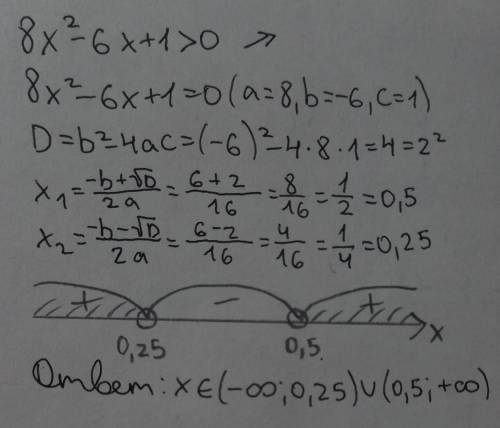 8x²-6x+1>0 ⇒
8x²-6x+1=0 (a=8, b=-6, c=1)
D=b²-4ac=(-6)²-4·8·1=4=2²
x₁=(-b+√D)/(2a)=(6+2)/16=8/16=1/2=0,5
x₂=(-b-√D)/(2a)=(6-2)/16=4/16=1/4=0,25
+ - +
0,25 0,5 x
Ответ: x∈(-∞;0,25)∪(0,5;+∞)